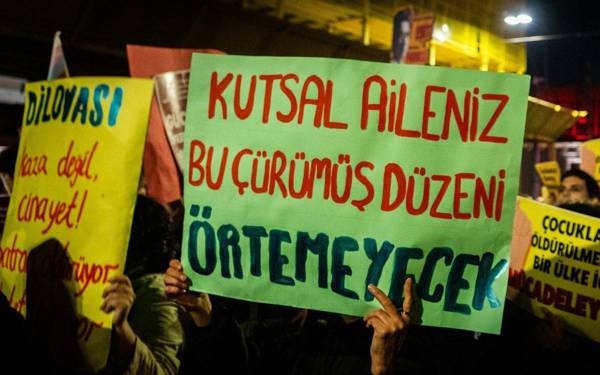 DİLOVASI
kaza değil,
cinayet!
KUTSAL AİLENİZ
BU ÇÜRÜMÜŞ DÜZENİ
ÖRTEMEYECEK
ÇOCUKLA
ÖLDÜRÜLME
BİR ÜLKE İ
MÜCADELEY